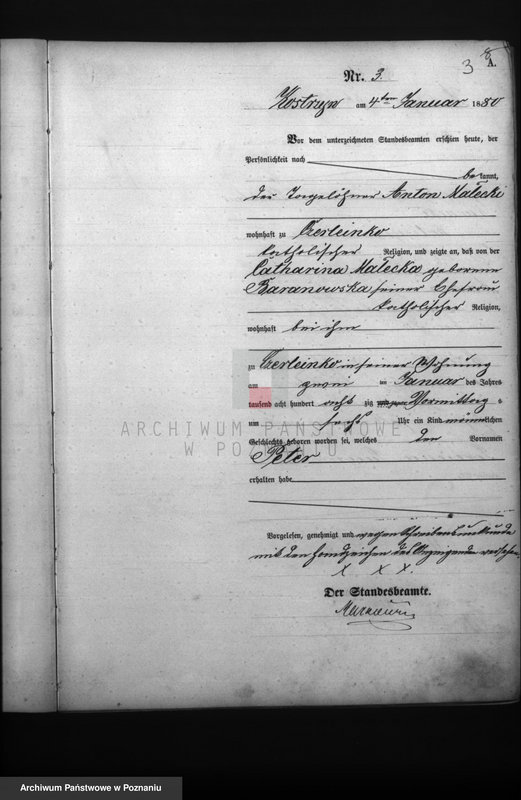 3 8
A.
Nr. 3.
Kostrzyn am 4ten Januar 1880
Vor dem unterzeichneten Standesbeamten erschien heute, der
Persönlichkeit nach
be kannt,
der Tagelöhner Anton Małecki
wohnhaft zu Czerleinko
katholischer Religion, und zeigte an, daß von der
Catharina Małecka geborenen
Baranowska seiner Ehefrau
katholischer Religion,
wohnhaft bei ihm
zu Czerleinko in seiner Wohnung
am zwei ten Januar des Jahres
tausend acht hundert acht zig und zwar Vormittag s
um sechs Uhr ein Kind männlichen
Geschlechts geboren worden sei, welches den Vornamen
Peter
erhalten habe
Vorgelesen, genehmigt und wegen Schreibensunkunde
mit den Handzeichen des Anzeigenden versehen
x x x.
Der Standesbeamte.
ARCHIWUM PAŃSTWOWE
W POZNANIU
Archiwum Państwowe w Poznaniu